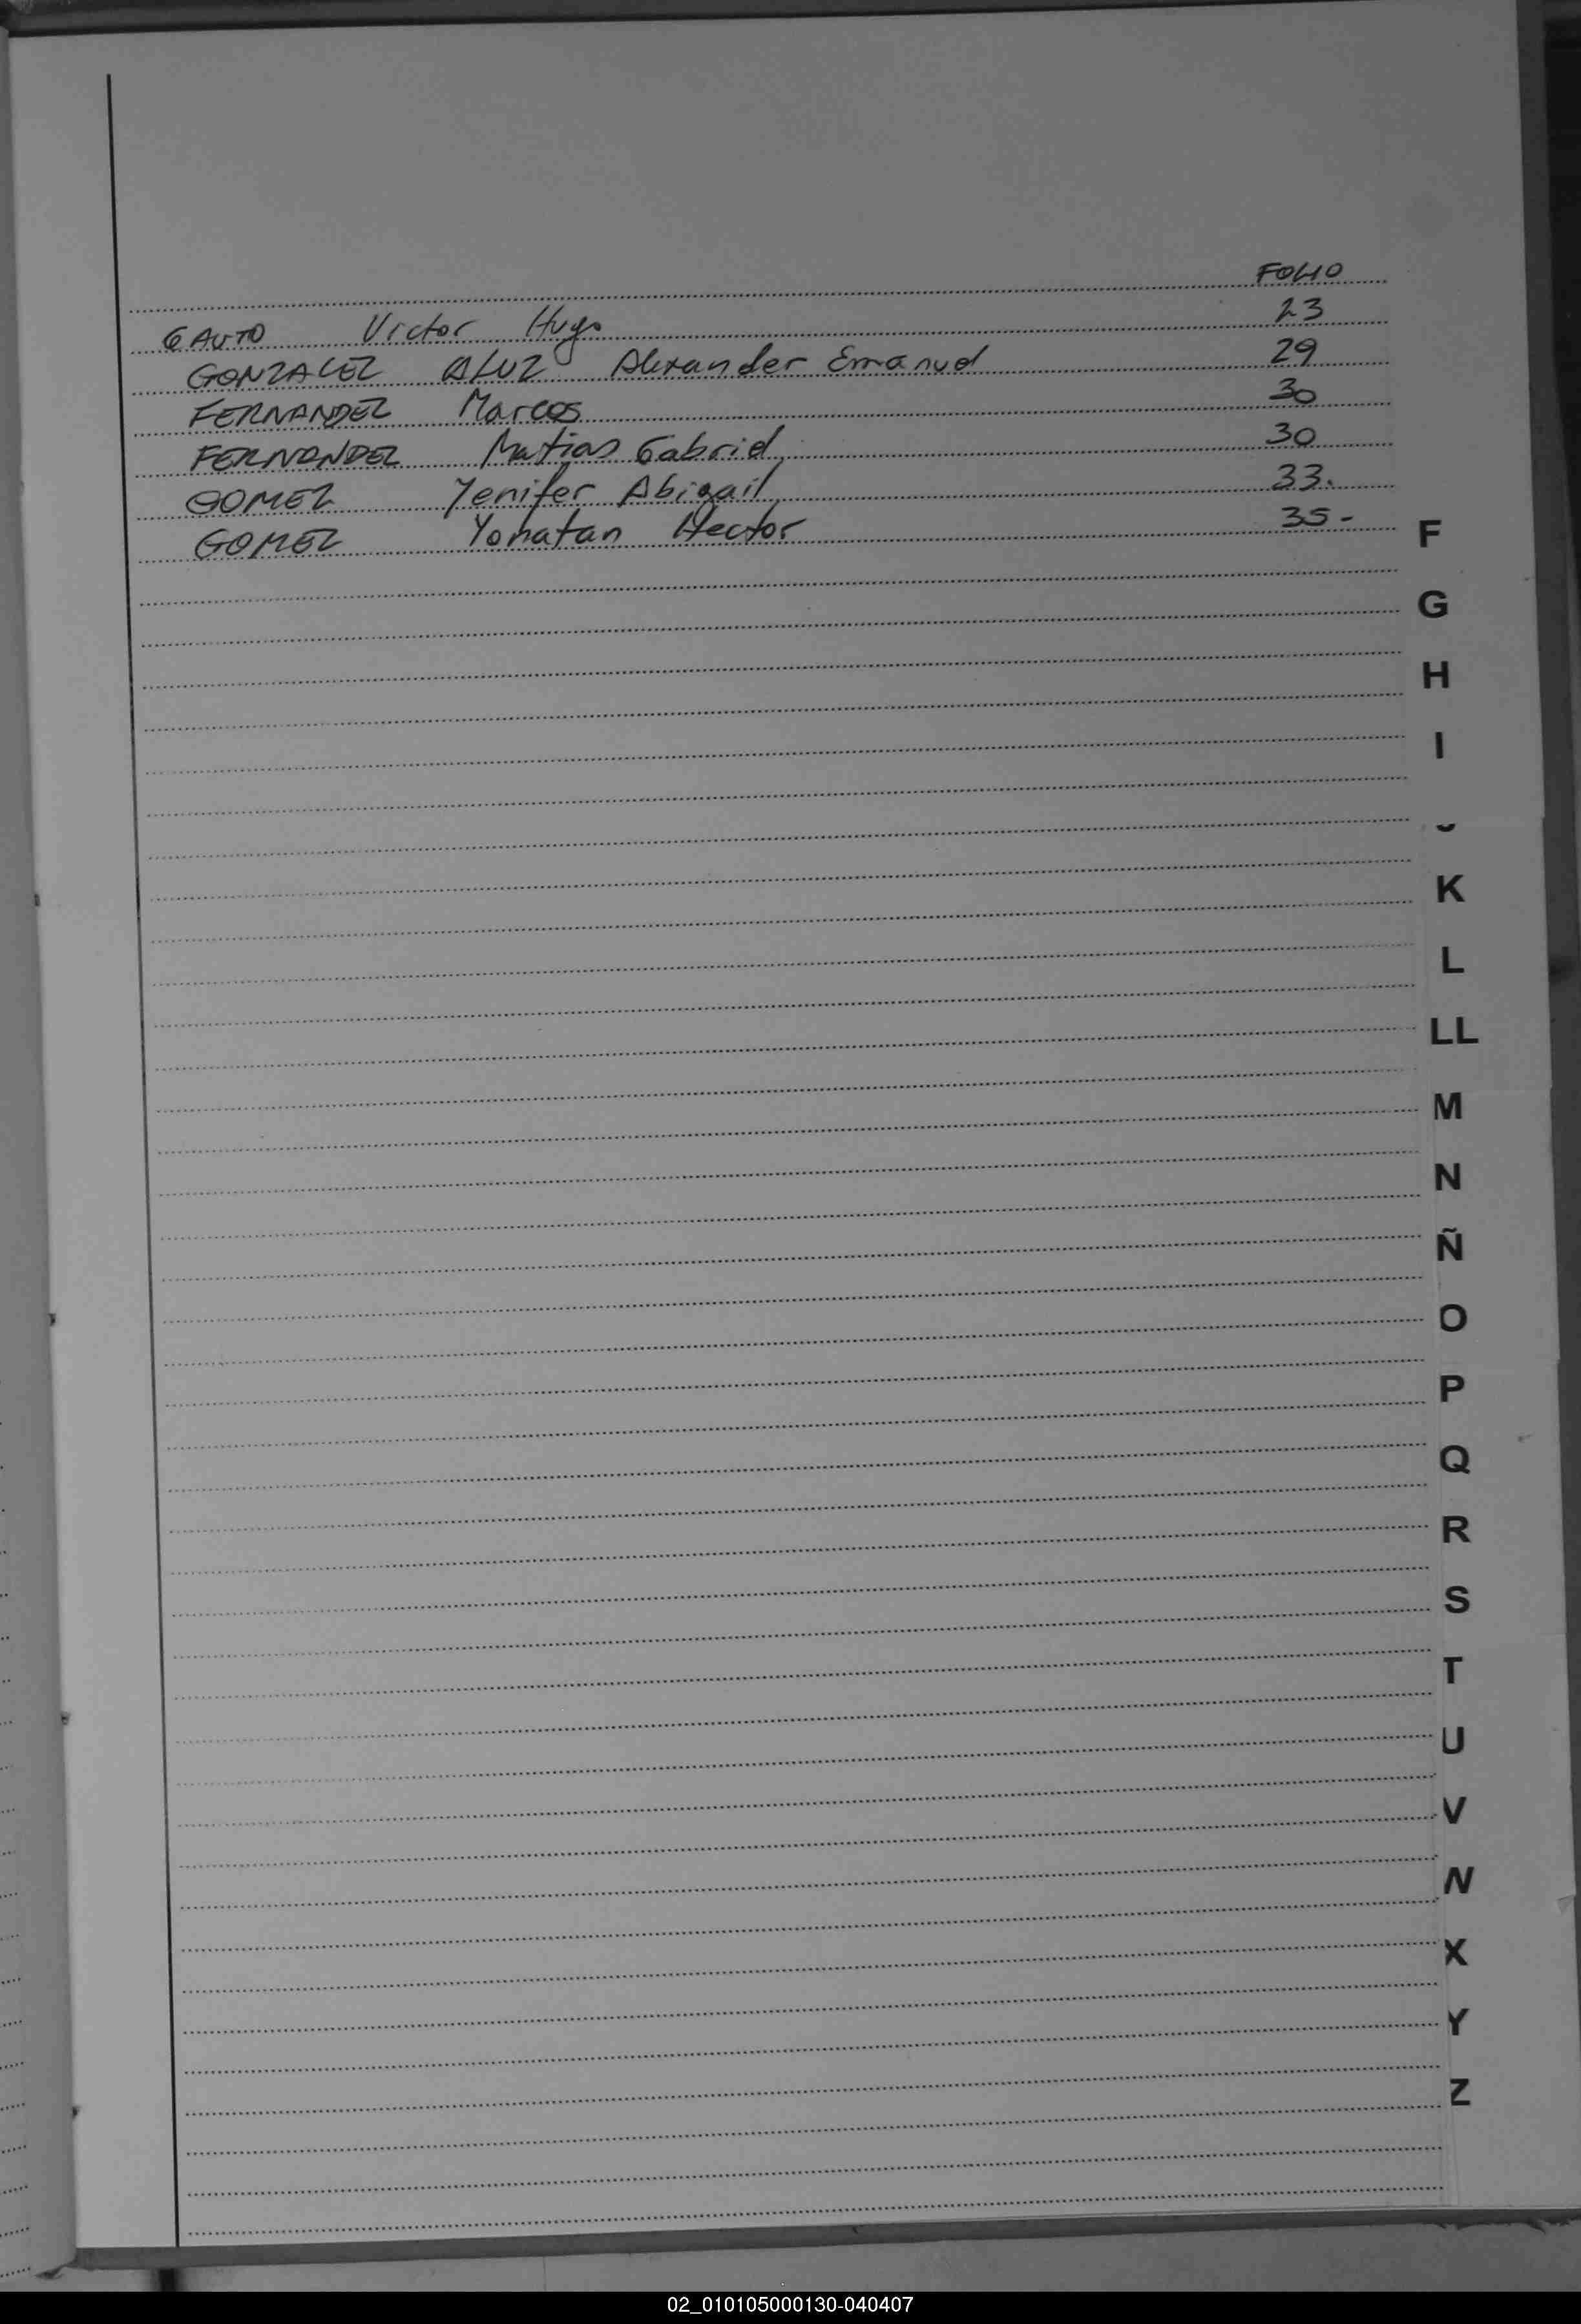 FOLIO
GAUTO Victor Hugo 23
GONZALEZ ALUZ Alexander Emanuel 29
FERNANDEZ Marcos 30
FERNANDEZ Matias Gabriel 30
GOMEZ Yenifer Abigail 33.
GOMEZ Yonatan Hector 35-
F
G
H
I
K
L
LL
M
N
Ñ
O
P
Q
R
S
T
U
V
X
Y
Z
02_010105000130-040407